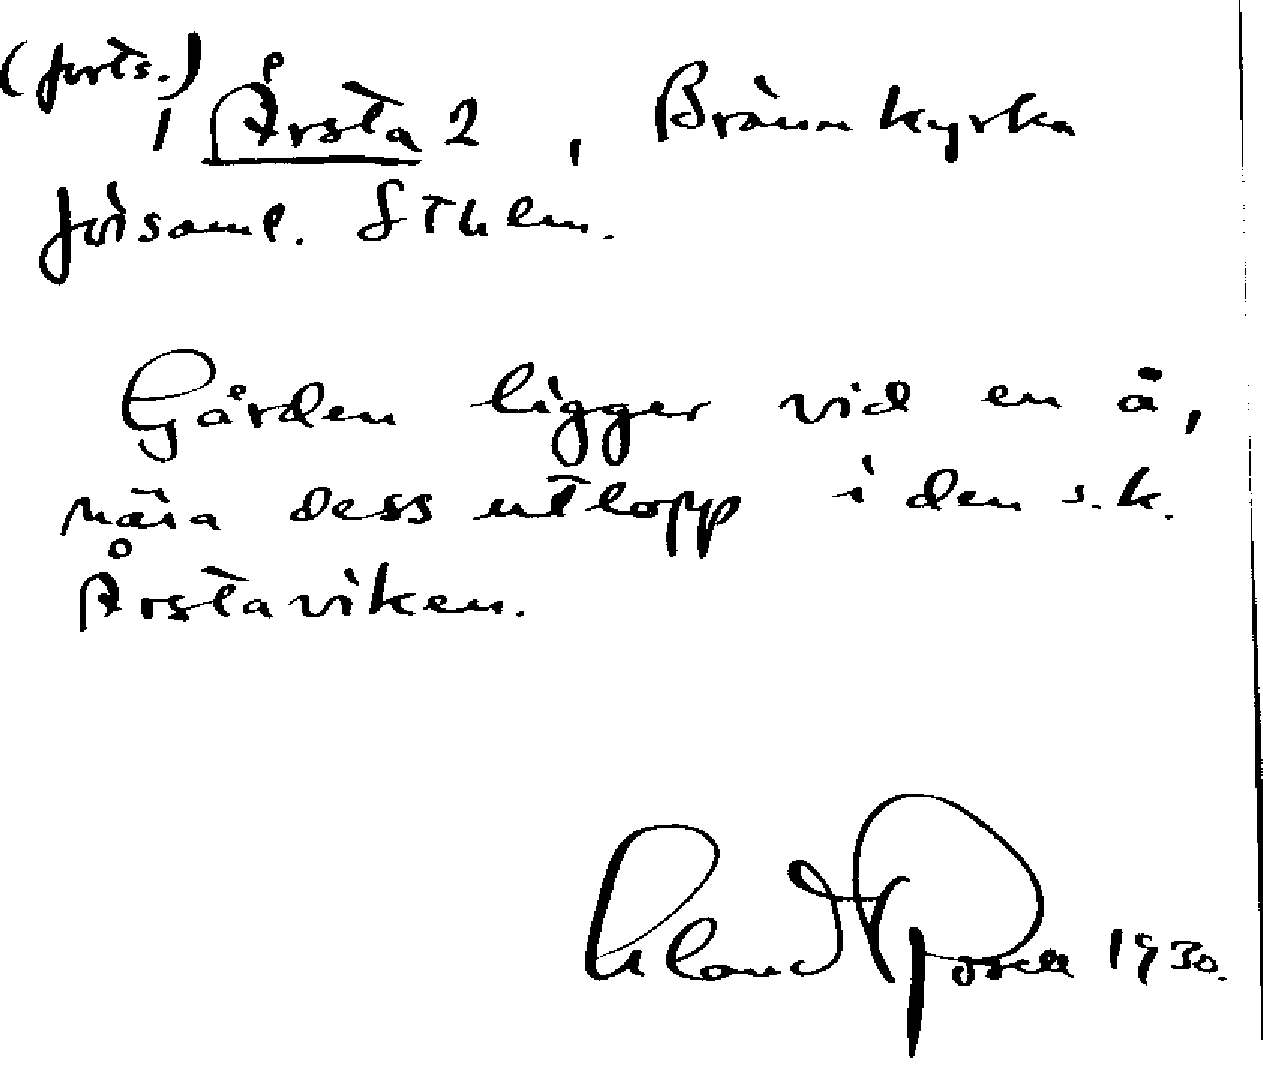 (forts.)
1 Årsta 2, Brännkyrka
församl. Sthlm.
Gården ligger vid en å,
nära dess utlopp i den s.k.
Årstaviken.
1930.